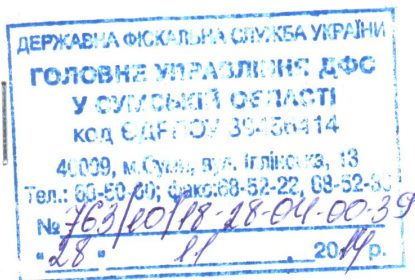 ДЕРЖАВНА ФІСКАЛЬНА СЛУЖБА УКРАЇНИ
ГОЛОВНЕ УПРАВЛІННЯ ДФС
У СУМСЬКІЙ ОБЛАСТІ
код ЄДРПОУ 39456414
40009, м.Суми, вул. Іллінська, 13
Тел.: факс:68-52-22,
№ 763/10/18-28-04-00-39
"28" 11 20 р.